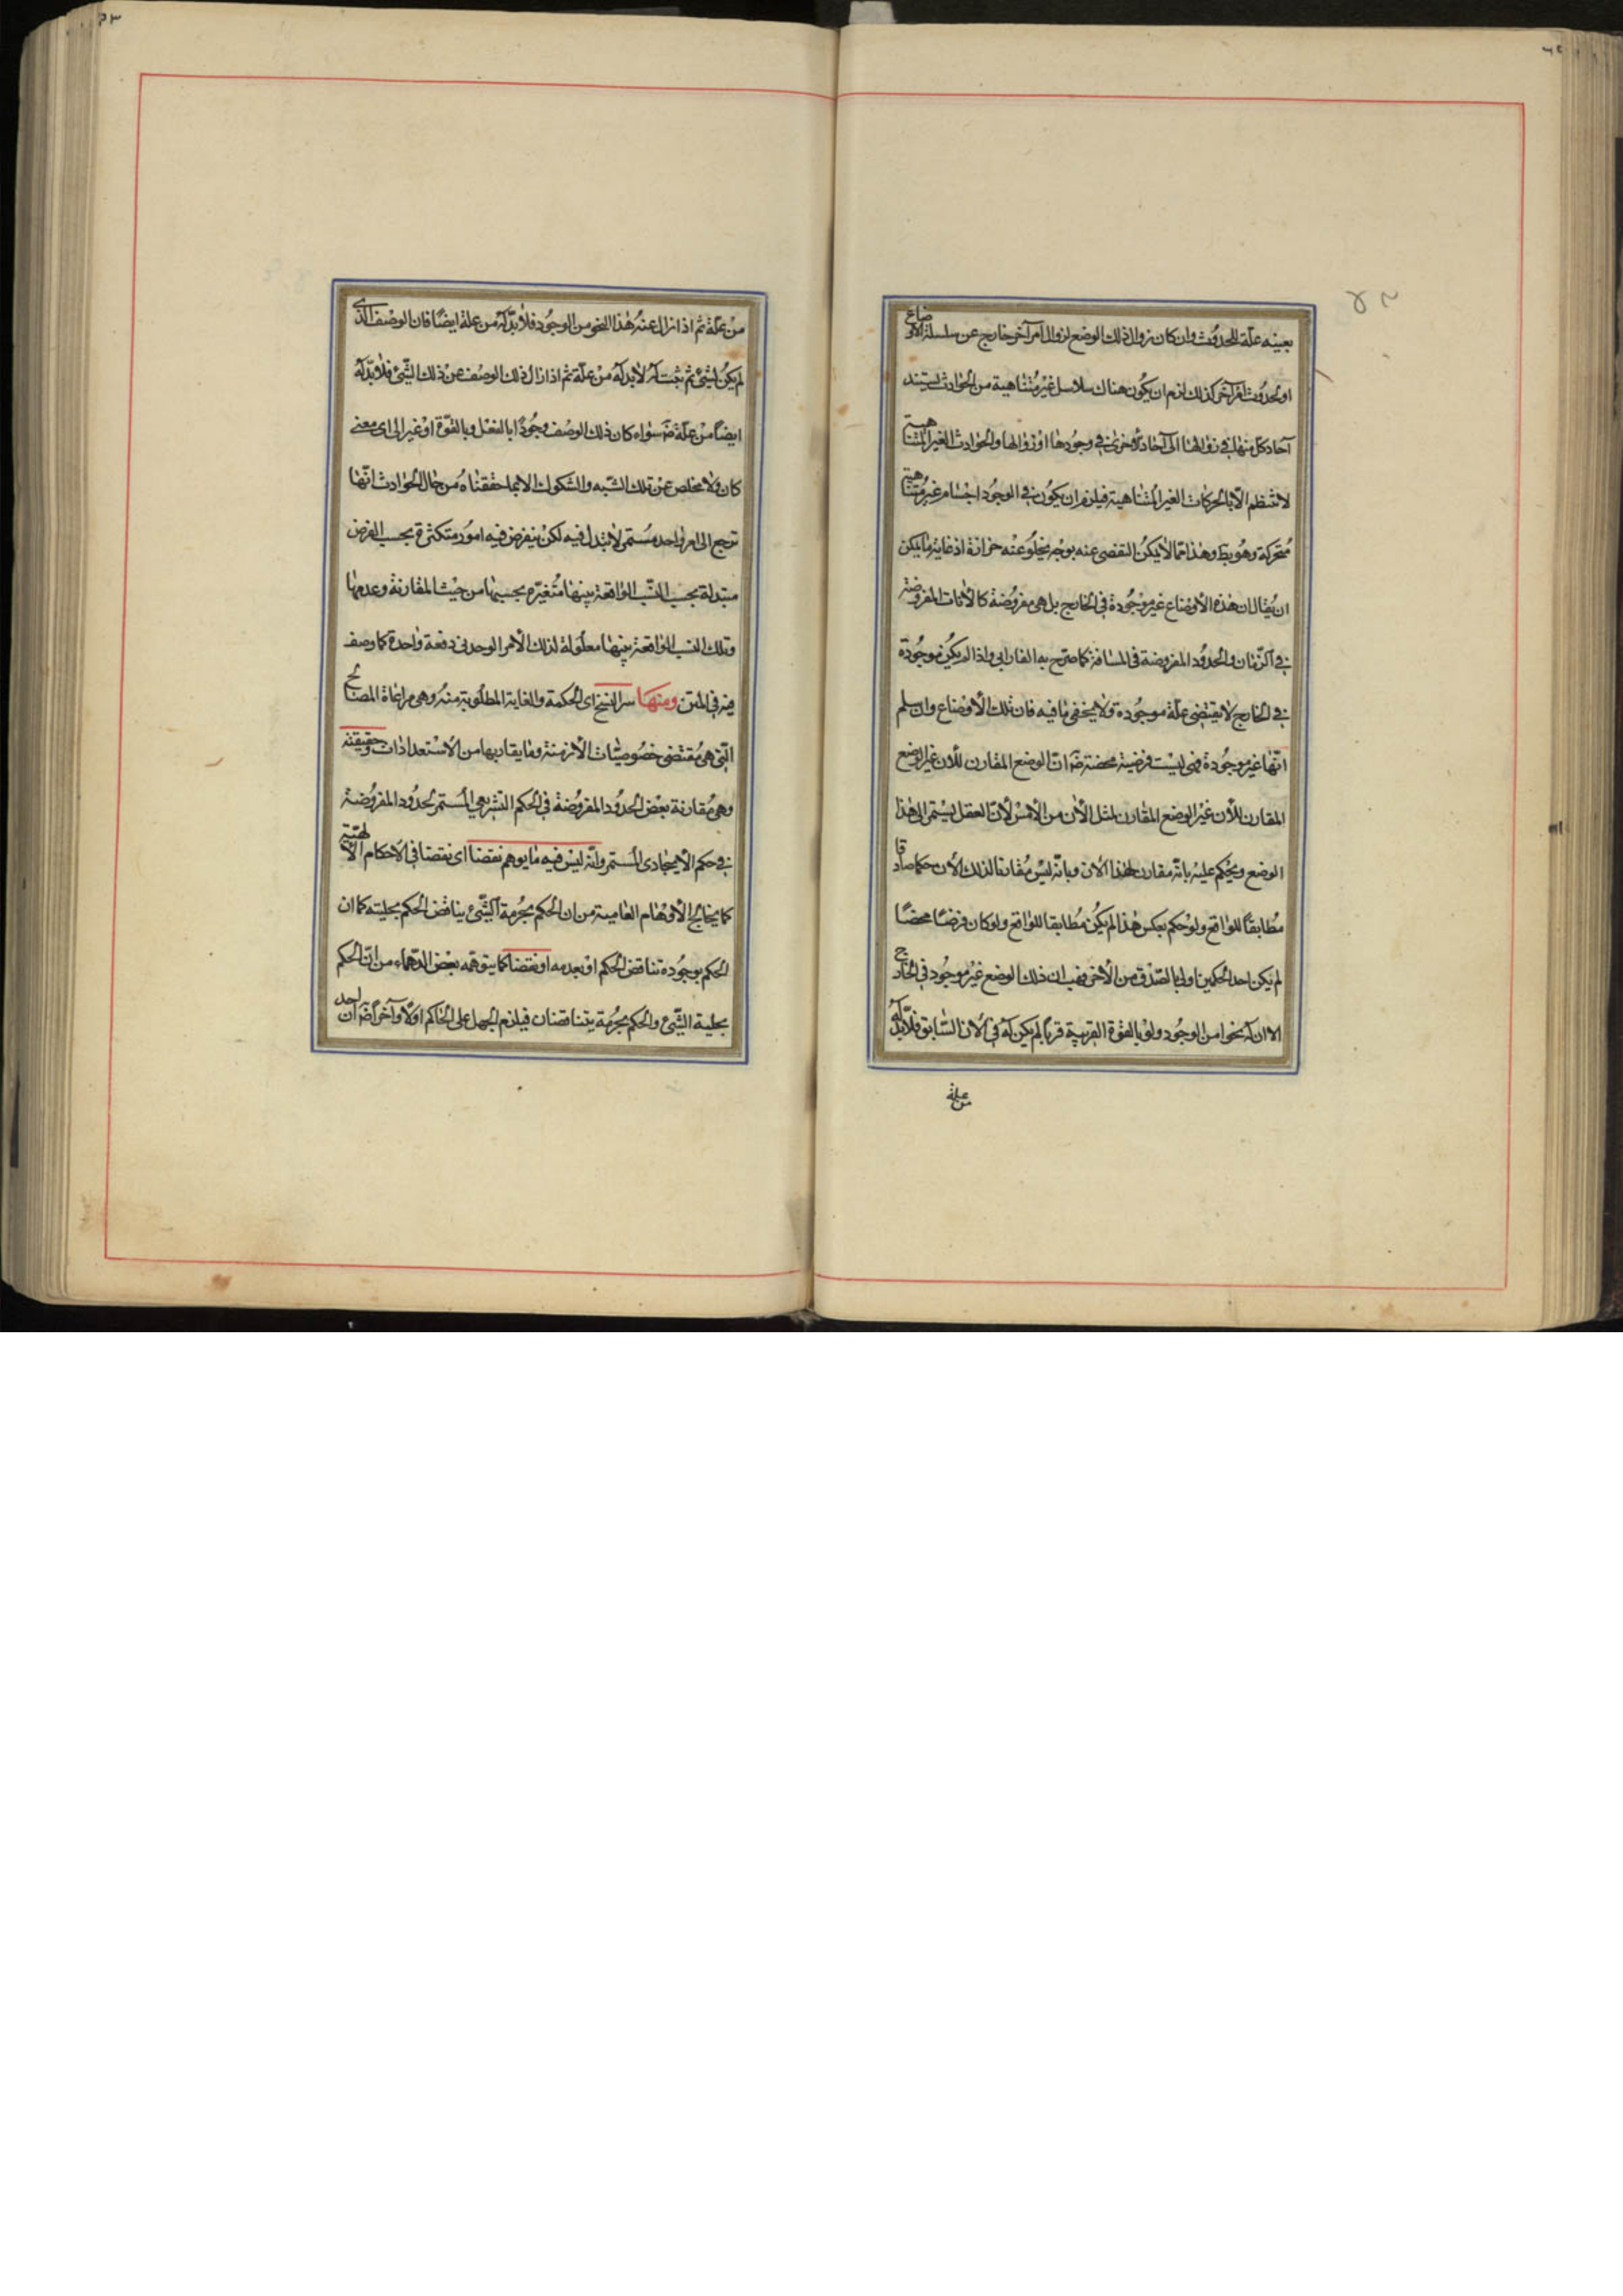 بعينه علة للحدوث وان كان زوال ذلك الوضع لزوال امر آخر خارج عن سلسلة الاوضاع
او لحدوث امر آخر كذلك لزم ان يكون هناك سلاسل غير متناهية من الحوادث ليستند
آحاد كل منها في زوالها الى آحاد الاخرى في وجودها او زوالها والحوادث الغير المتناهية
لا تنتظم الا بالحركات الغير المتناهية فيلزم ان يكون في الوجود اجسام غير متناهية
متحركة وهو بط وهذا مما لا يمكن التفصى عنه بوجه يخلو عنه حزازة اذ غاية ما يمكن
ان يقال ان هذه الأوضاع غير موجودة في الخارج بل هي مفروضة كالآنات المفروضة
في الزمان والحدود المفروضة في المسافة كما صرح به الفارابي واذا لم يكن موجودة
في الخارج لا يقتضي علة موجودة ولا يخفى ما فيه فان تلك الأوضاع وان سلم
انها غير موجودة فهي ليست فرضية محضة ضر ان الوضع المقارن للآن غير الوضع
المقارن للآن غير الوضع المقارن لمثل الآن من الامس لأن العقل يستمى الى هذا
الوضع ويحكم عليه بانه مقارن لهذا الآن وبانه ليس مقارنا لذلك الآن حكما صادقا
مطابقا للواقع ولو حكم بعكس هذا لم يكن مطابقا للواقع ولو كان فرضا محضا
لم يكن احد الحكمين اولى بالصدق من الآخر فهب ان ذلك الوضع غير موجود في الخارج
الا ان له نحوا من الوجود ولو بالقوة القريبة قربا لم يكن له في الآن السابق فلابد له
من علة
من علة ثم اذا زال عنه هذا النحو من الوجود فلابد له من علة ايضا فان الوصف الذى
لم يكن لشئ ثم يثبت له لابد له من علة ثم اذا زال ذلك الوصف عن ذلك الشئ فلابد له
ايضا من علة ضر سواء كان ذلك الوصف وجودا بالفعل وبالقوة او غير الى اى معنى
كان ولا مخلص عن تلك الشبه والشكوك الا بما حققناه من حال الحوادث انها
ترجع الى امر واحد مستمر لا تبدل فيه لكن ينفرض فيه امور متكثرة بحسب الفرض
متبدلة بحسب النسب الواقعة بينها متغيرة بحسبها من حيث المقارنة وعدمها
وتلك النسب الواقعة بينها معلولة لذلك الأمر الوحدني دفعة واحدة كما وصف
فيه في المتن ومنها سر النسخ اى الحكمة والغاية المطلوبة منه وهي مراعاة المصالح
التي هي مقتضى خصوصيات الأزمنة وما يقاربها من الاستعدادات وحقيقته
وهي مقارنة بعض الحدود المفروضة في الحكم التشريعي المستمر لحدود المفروضة
في حكم الايجادى المستمر وانه ليس فيه ما يوهم نقضا اى نقضا في الاحكام الالهية
كما يخالج الأوهام العامية من ان الحكم بحرمة الشئ يناقض الحكم بحليته كما ان
الحكم بوجوده تناقض الحكم او بعدمه او نقضا كما يتوهمه بعض الدهماء من ان الحكم
بحلية الشئ والحكم بحرمة يتناقضان فيلزم الجهل على الحاكم اولا وآخرا ضر ان احد